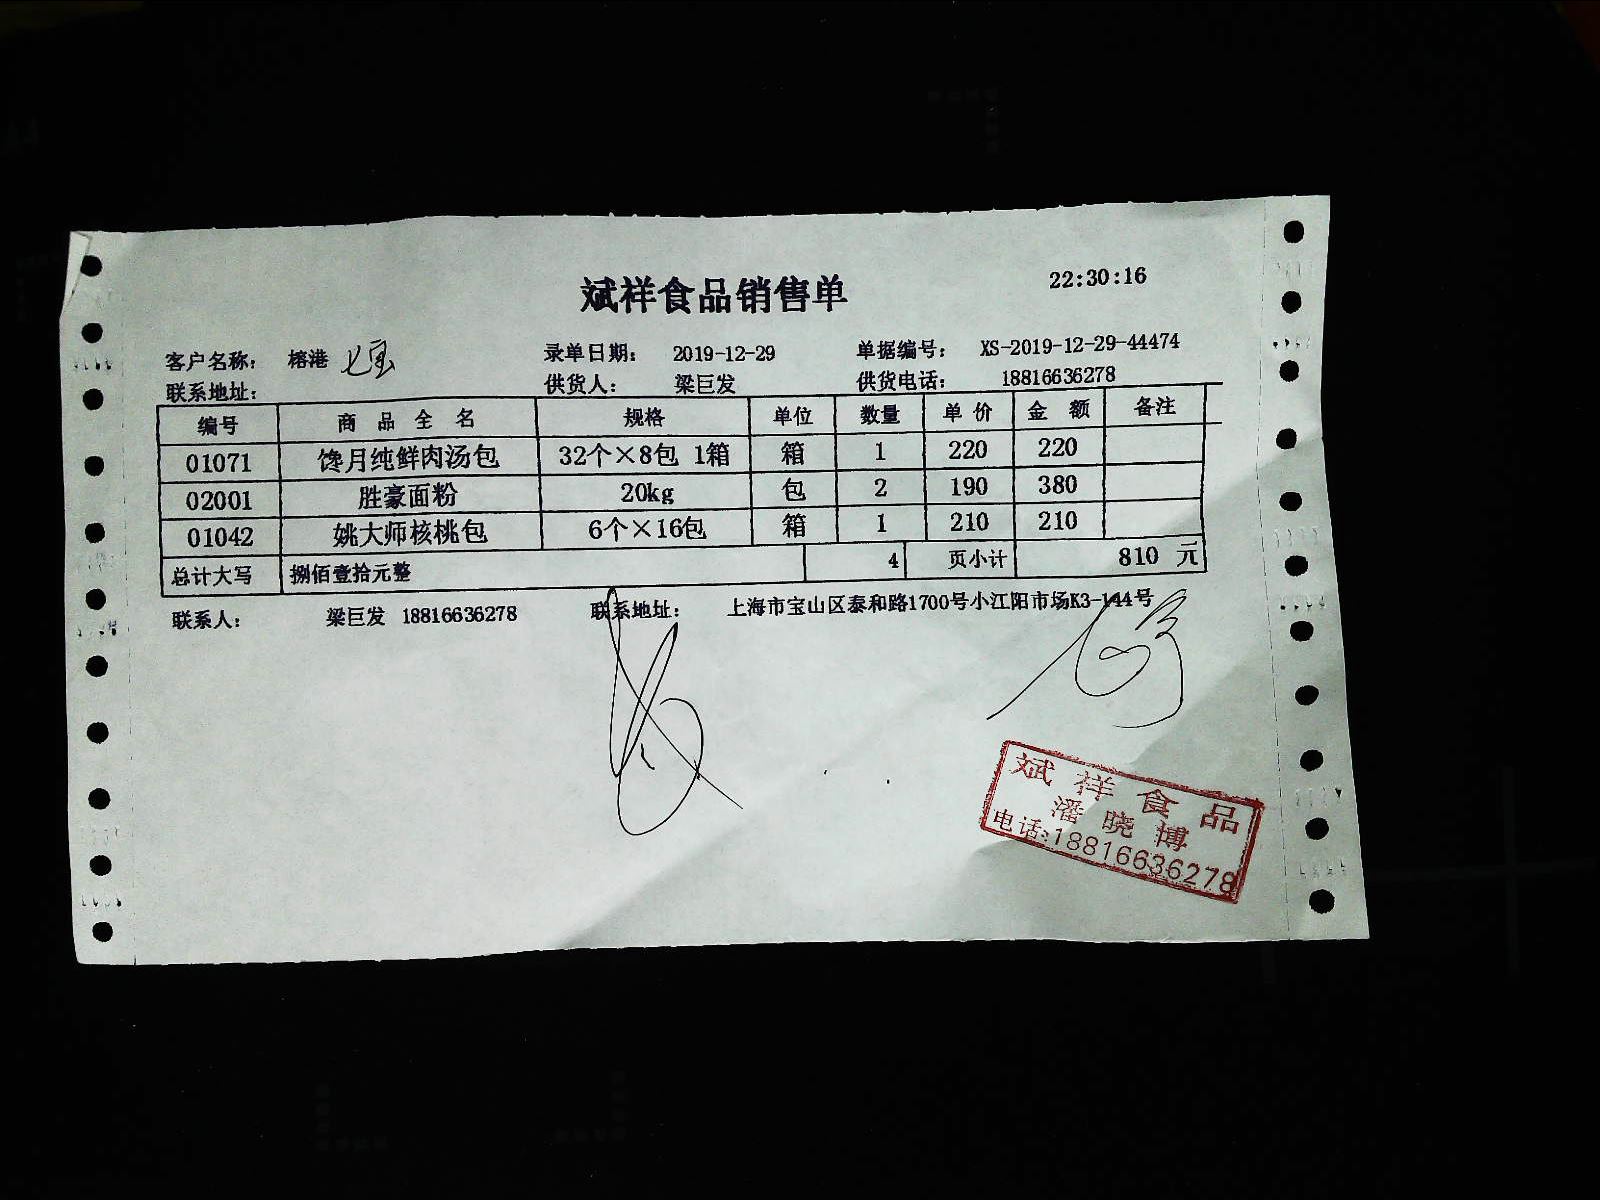 斌祥食品销售单 22:30:16
客户名称: 榕港 七宝 录单日期: 2019-12-29 单据编号: XS-2019-12-29-44474
联系地址: 供货人: 梁巨发 供货电话: 18816636278
编号 商品全名 规格 单位 数量 单价 金额 备注
01071 馋月纯鲜肉汤包 32个×8包 1箱 箱 1 220 220
02001 胜豪面粉 20kg 包 2 190 380
01042 姚大师核桃包 6个×16包 箱 1 210 210
总计大写 捌佰壹拾元整 4 页小计 810 元
联系人: 梁巨发 18816636278 联系地址: 上海市宝山区泰和路1700号小江阳市场K3-144号
斌祥食品
潘晓博
电话:18816636278